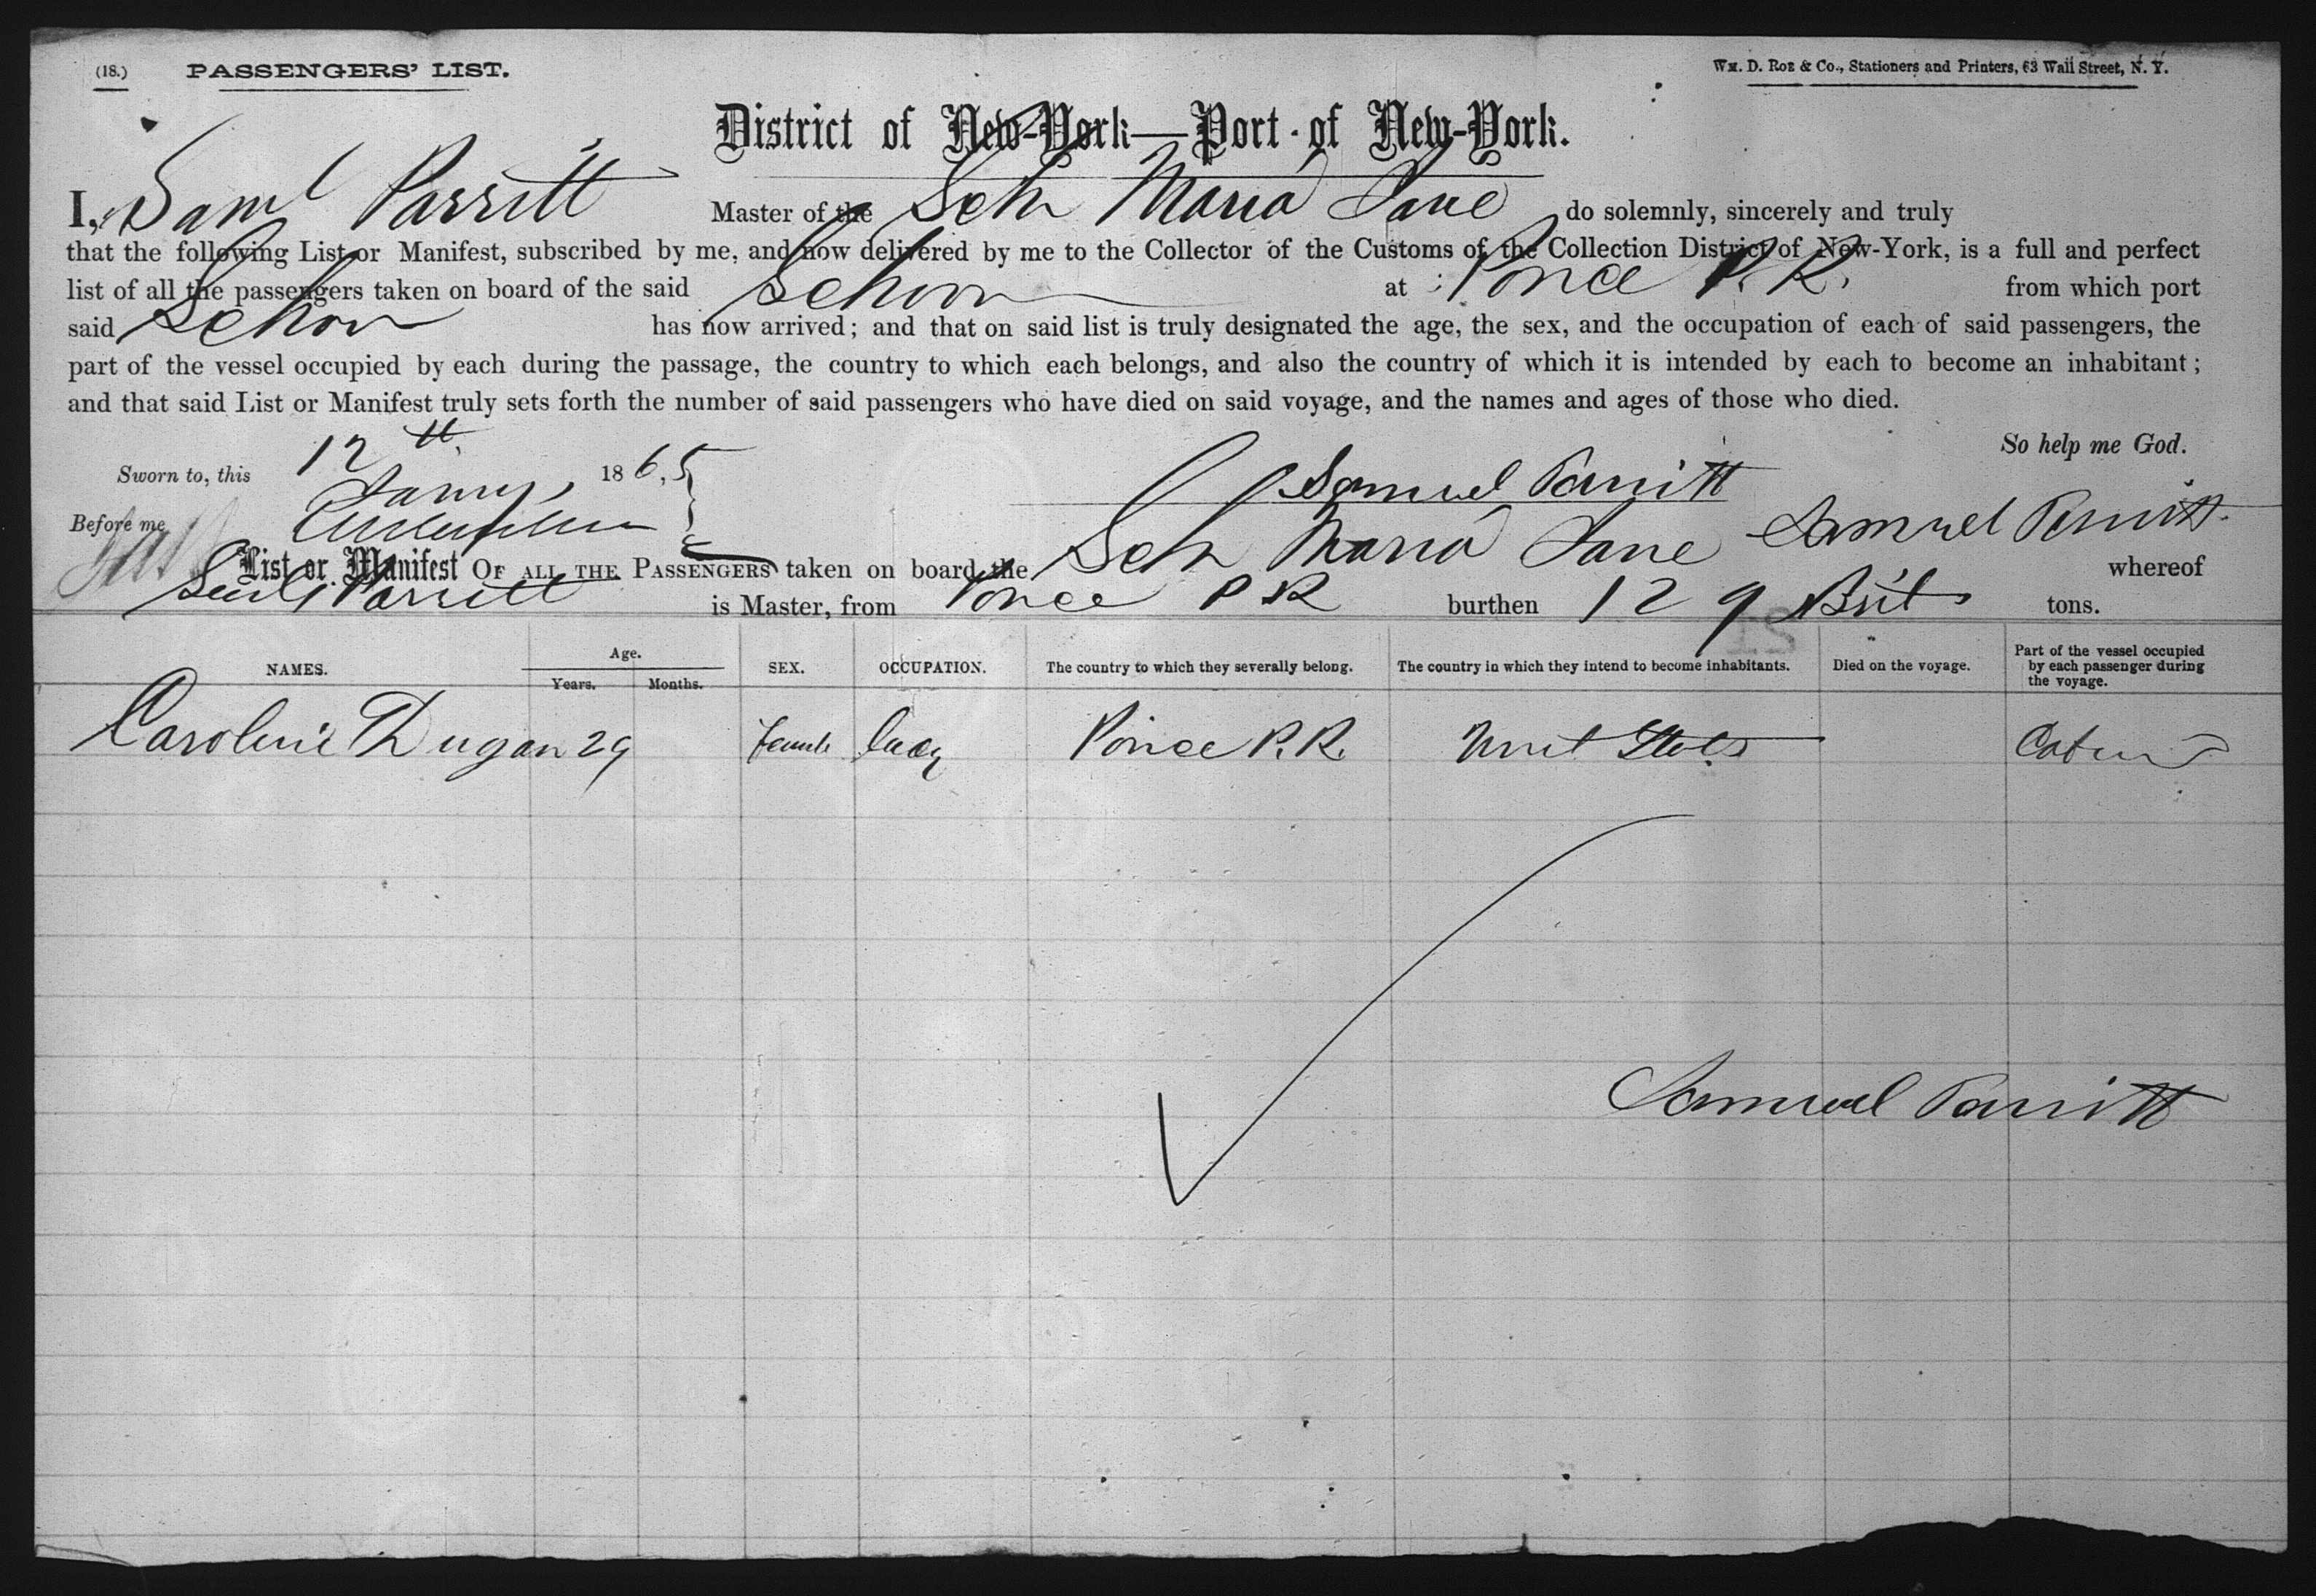 (18.) PASSENGERS' LIST.
WM. D. ROE & Co., Stationers and Printers, 63 Wall Street, N. Y.
District of New-York—Port of New-York.
I, Saml Parritt Master of the Schr Maria Jane do solemnly, sincerely and truly
that the following List or Manifest, subscribed by me, and now delivered by me to the Collector of the Customs of the Collection District of New-York, is a full and perfect
list of all the passengers taken on board of the said Schoon at Ponce P. R. from which port
said Schoon has now arrived; and that on said list is truly designated the age, the sex, and the occupation of each of said passengers, the
part of the vessel occupied by each during the passage, the country to which each belongs, and also the country of which it is intended by each to become an inhabitant;
and that said List or Manifest truly sets forth the number of said passengers who have died on said voyage, and the names and ages of those who died.
So help me God.
Sworn to, this 12th Jany 1865
Samuel Parritt
Before me
Samuel Parritt
List or Manifest OF ALL THE PASSENGERS taken on board the Schr Maria Jane whereof
Parritt is Master, from Ponce P R burthen 129 Brit tons.
NAMES. Age. Years. Months. SEX. OCCUPATION. The country to which they severally belong. The country in which they intend to become inhabitants. Died on the voyage. Part of the vessel occupied by each passenger during the voyage.
Caroline Dugan 29 Female Lady Ponce P. R. Unit States Cabin
Samuel Parritt